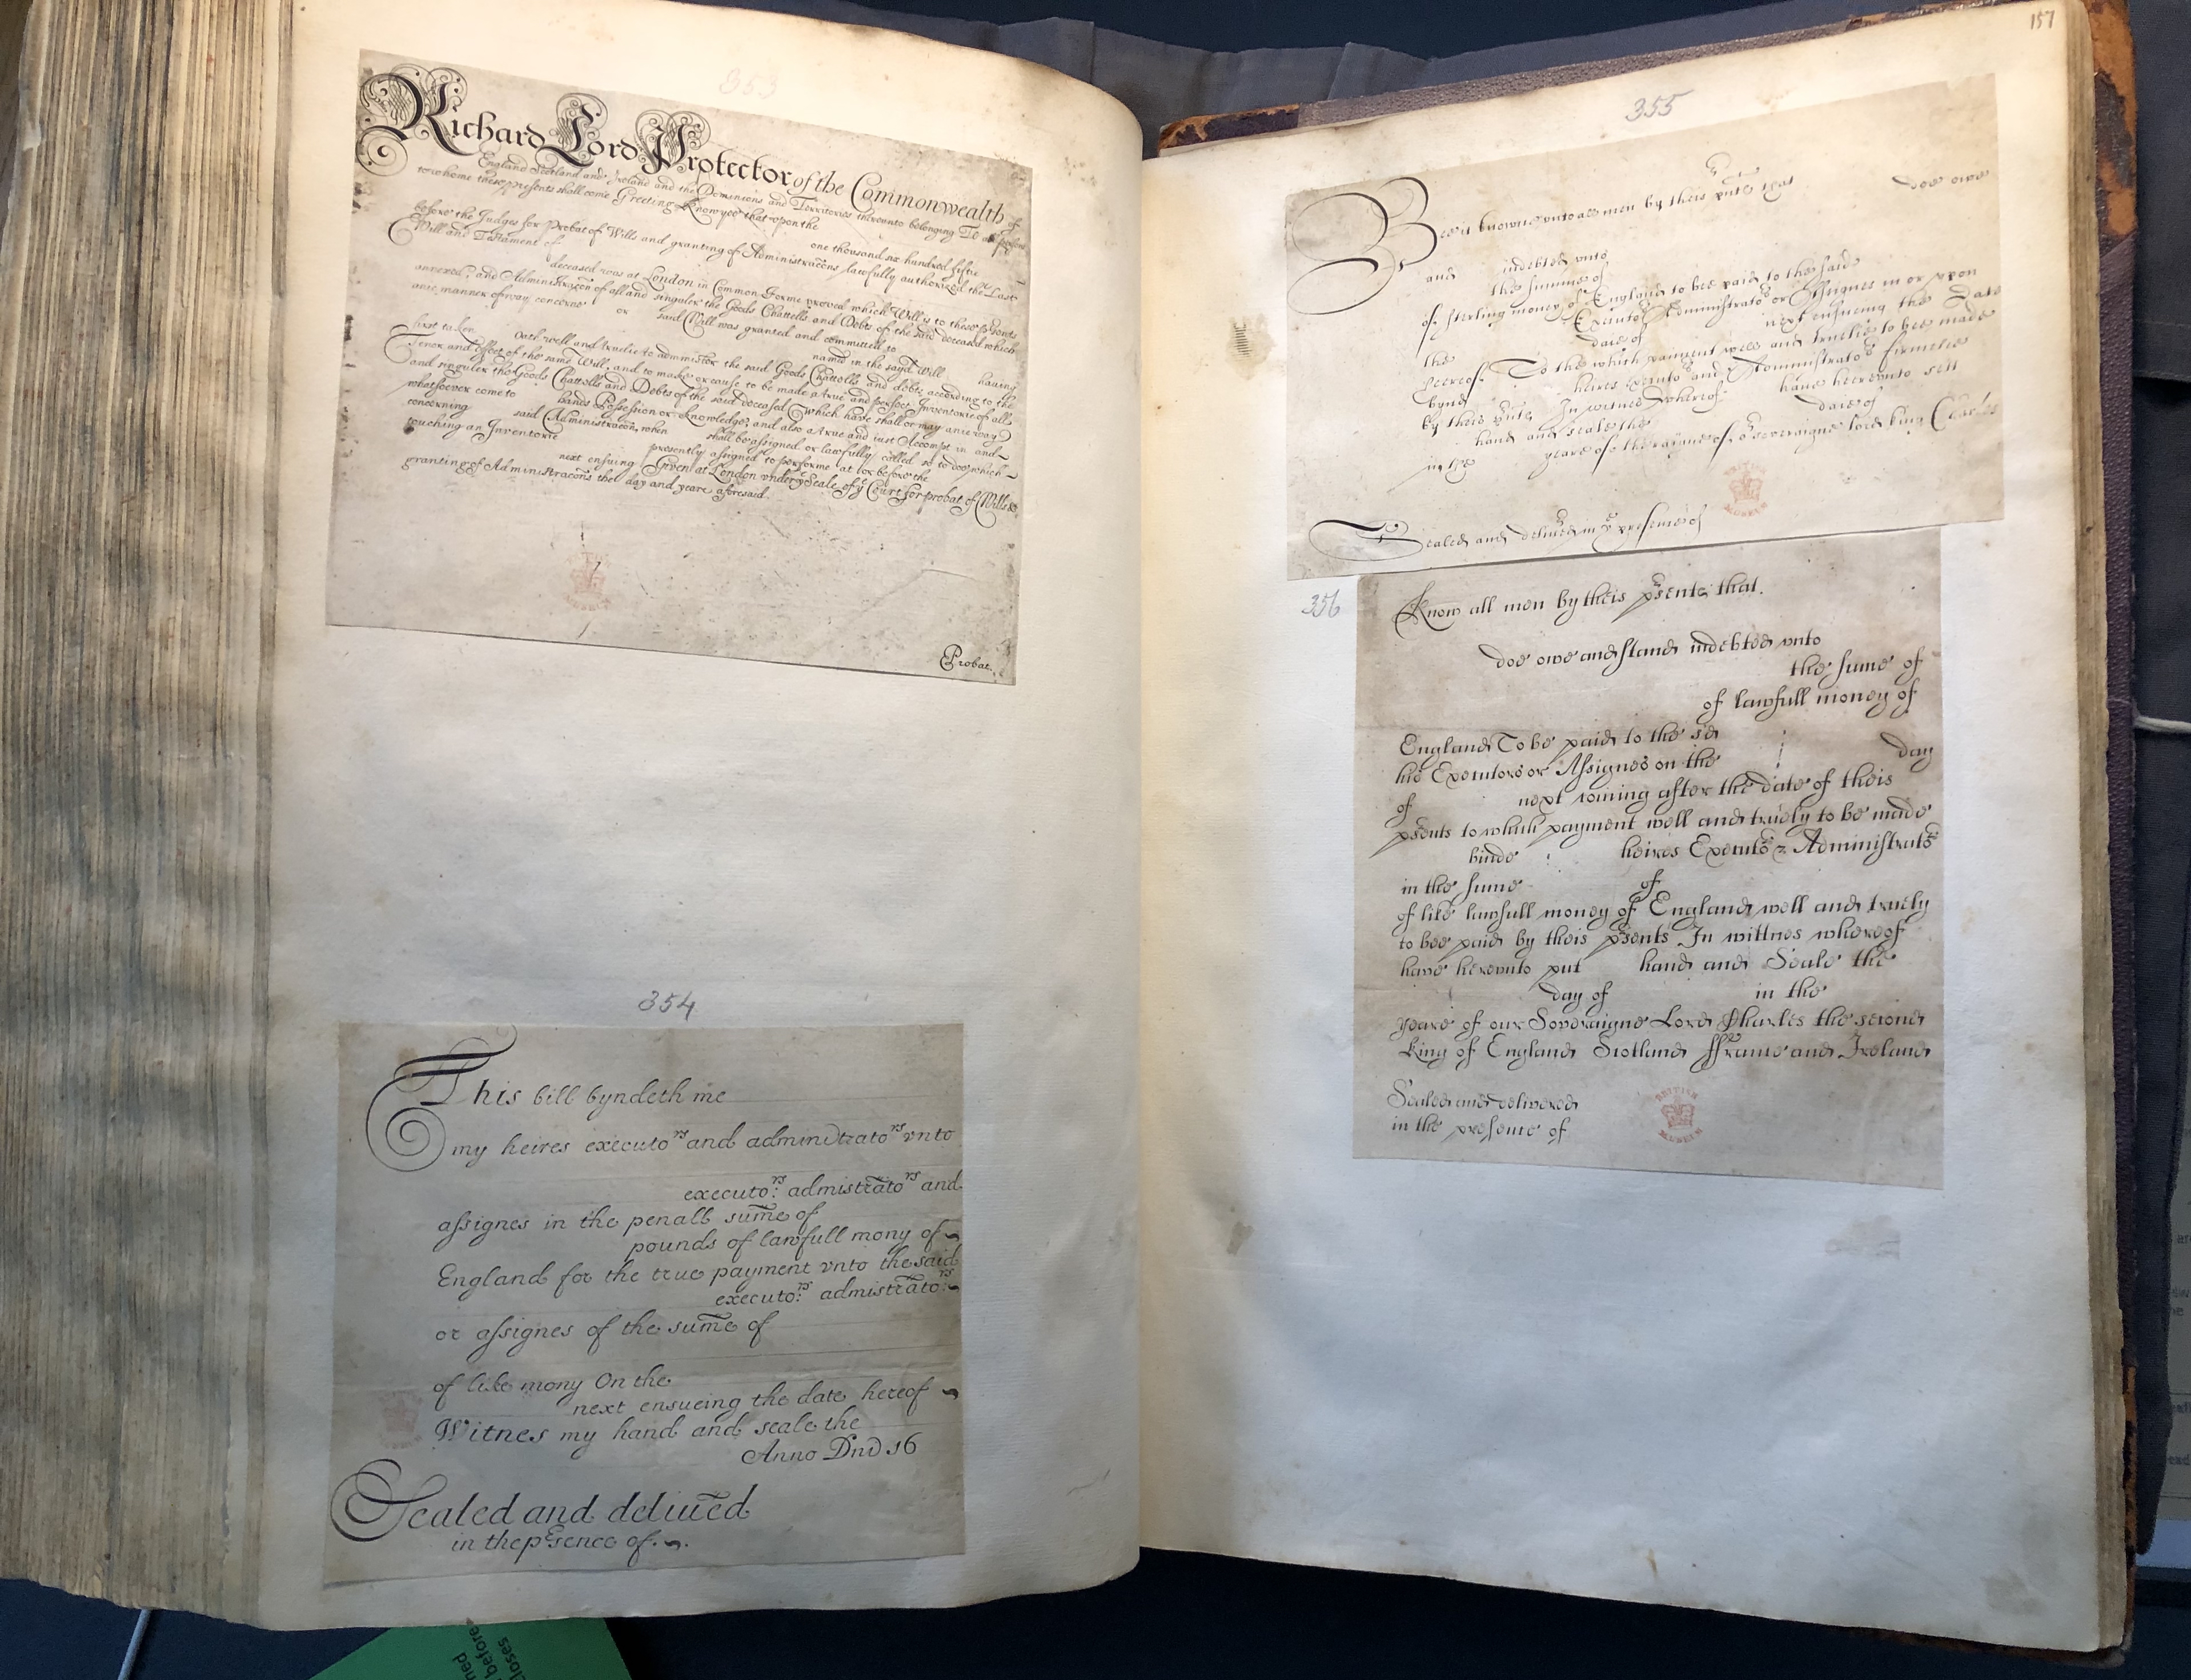 353
Richard Lord Protector of the Commonwealth of
England Scotland and Ireland and the Dominions and Territories thereunto belonging To all persons
to whome these presents shall come Greeting Know yee that vpon the
one thousand six hundred fiftie
before the Judges for Probat of Wills and granting of Administracons lawfully authorized the Last
Will and Testament of
deceased was at London in Common Forme proved which Will is to these presents
annexed, and Administracon of all and singuler the Goods Chattells and Debts of the said deceased which
anie manner of way concerne or said Will was granted and committed to
named in the sayd Will having
first taken Oath well and truelie to administer the said Goods Chattells and debts, according to the
Tenor and Effect of the same Will, and to make or cause to be made a true and perfect Inventorie of all
and singuler the Goods Chattells and Debts of the said deceased which have shall or may anie way
whatsoever come to hands Possession or knowledge, and also a true and iust Accompt in and
concerning said Administracon, when shall be assigned or lawfully called so to doe which
touching an Inventorie presently assigned to performe at or before the
next ensuing Given at London vnder yͤ Seale of yͤ Court for probat of Wills &
granting of Administracons the day and yeare aforesaid.
Probat.
354
This bill byndeth me
my heires executoʳˢ and admindtratoʳˢ vnto
executoʳˢ: admistratoʳˢ and
assignes in the penall sume of
pounds of lawfull mony of
England for the true payment vnto the said
executoʳˢ: admistratoʳˢ:
or assignes of the sume of
of like mony On the
next ensueing the date hereof
Witnes my hand and seale the
Anno Dnd 16
Sealed and deliued
in the psence of
157
355
Bee it knowne vnto all men by theis pnts that doe owe
and indebted vnto
the summe of
of sterling money of England to bee paid to the said
Executoʳˢ Administratoʳˢ or Assignes in or vpon
the daie of next ensueing the Date
hereof. To the which paiment well and truelie to bee made
bynd heires Executoʳˢ and Administratoʳˢ firmelie
by theis pnts In witnes whereof have herevnto sett
hand and seale the daie of
in the yeare of the raigne of oʳ soveraigne lord king Charles
BRITISH MUSEUM
Sealed and deliued in yͤ presence of
356
Know all men by theis psents that.
doe owe and stand indebted vnto
the sume of
of lawfull money of
England To be paid to the sd
his Executors or Assignes on the day
of next coming after the date of theis
psents to which payment well and truely to be made
binde heires Executoʳˢ & Administratoʳˢ
in the sume of
of like lawfull money of England well and truely
to bee paid by theis psents In wittnes whereof
have herevnto put hand and Seale the
day of in the
yeare of our Soveraigne Lord Charles the second
King of England Scotland ffrance and Ireland
Sealed and delivered
in the presence of
BRITISH MUSEUM
before
loses